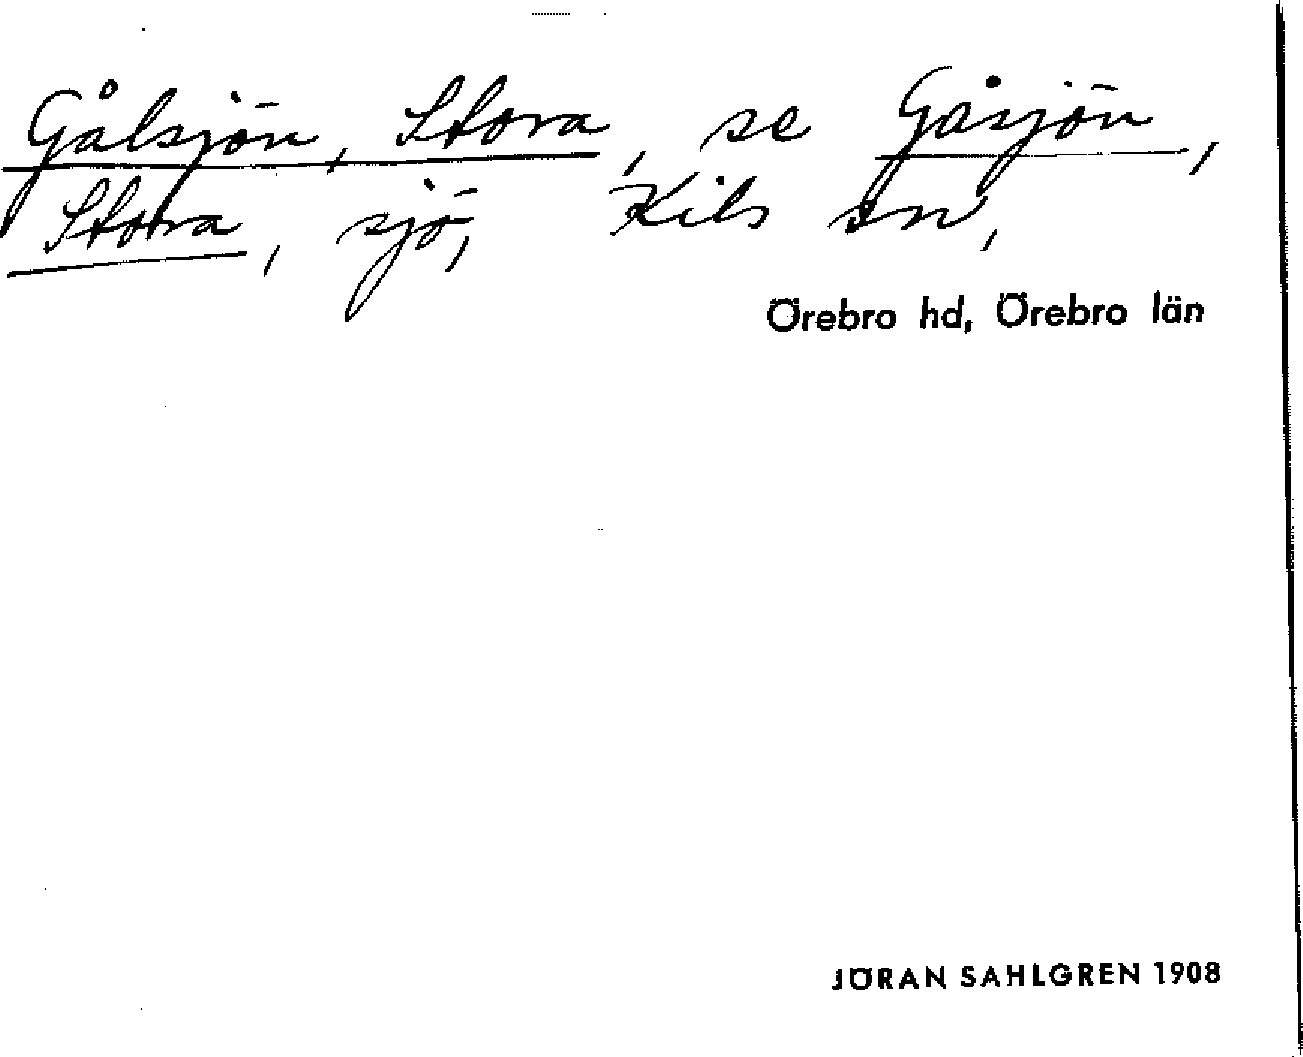 Gålsjön, Stora, se Gåsjön,
Stora, sjö, Kils sn,
Örebro hd, Örebro län
JÖRAN SAHLGREN 1908